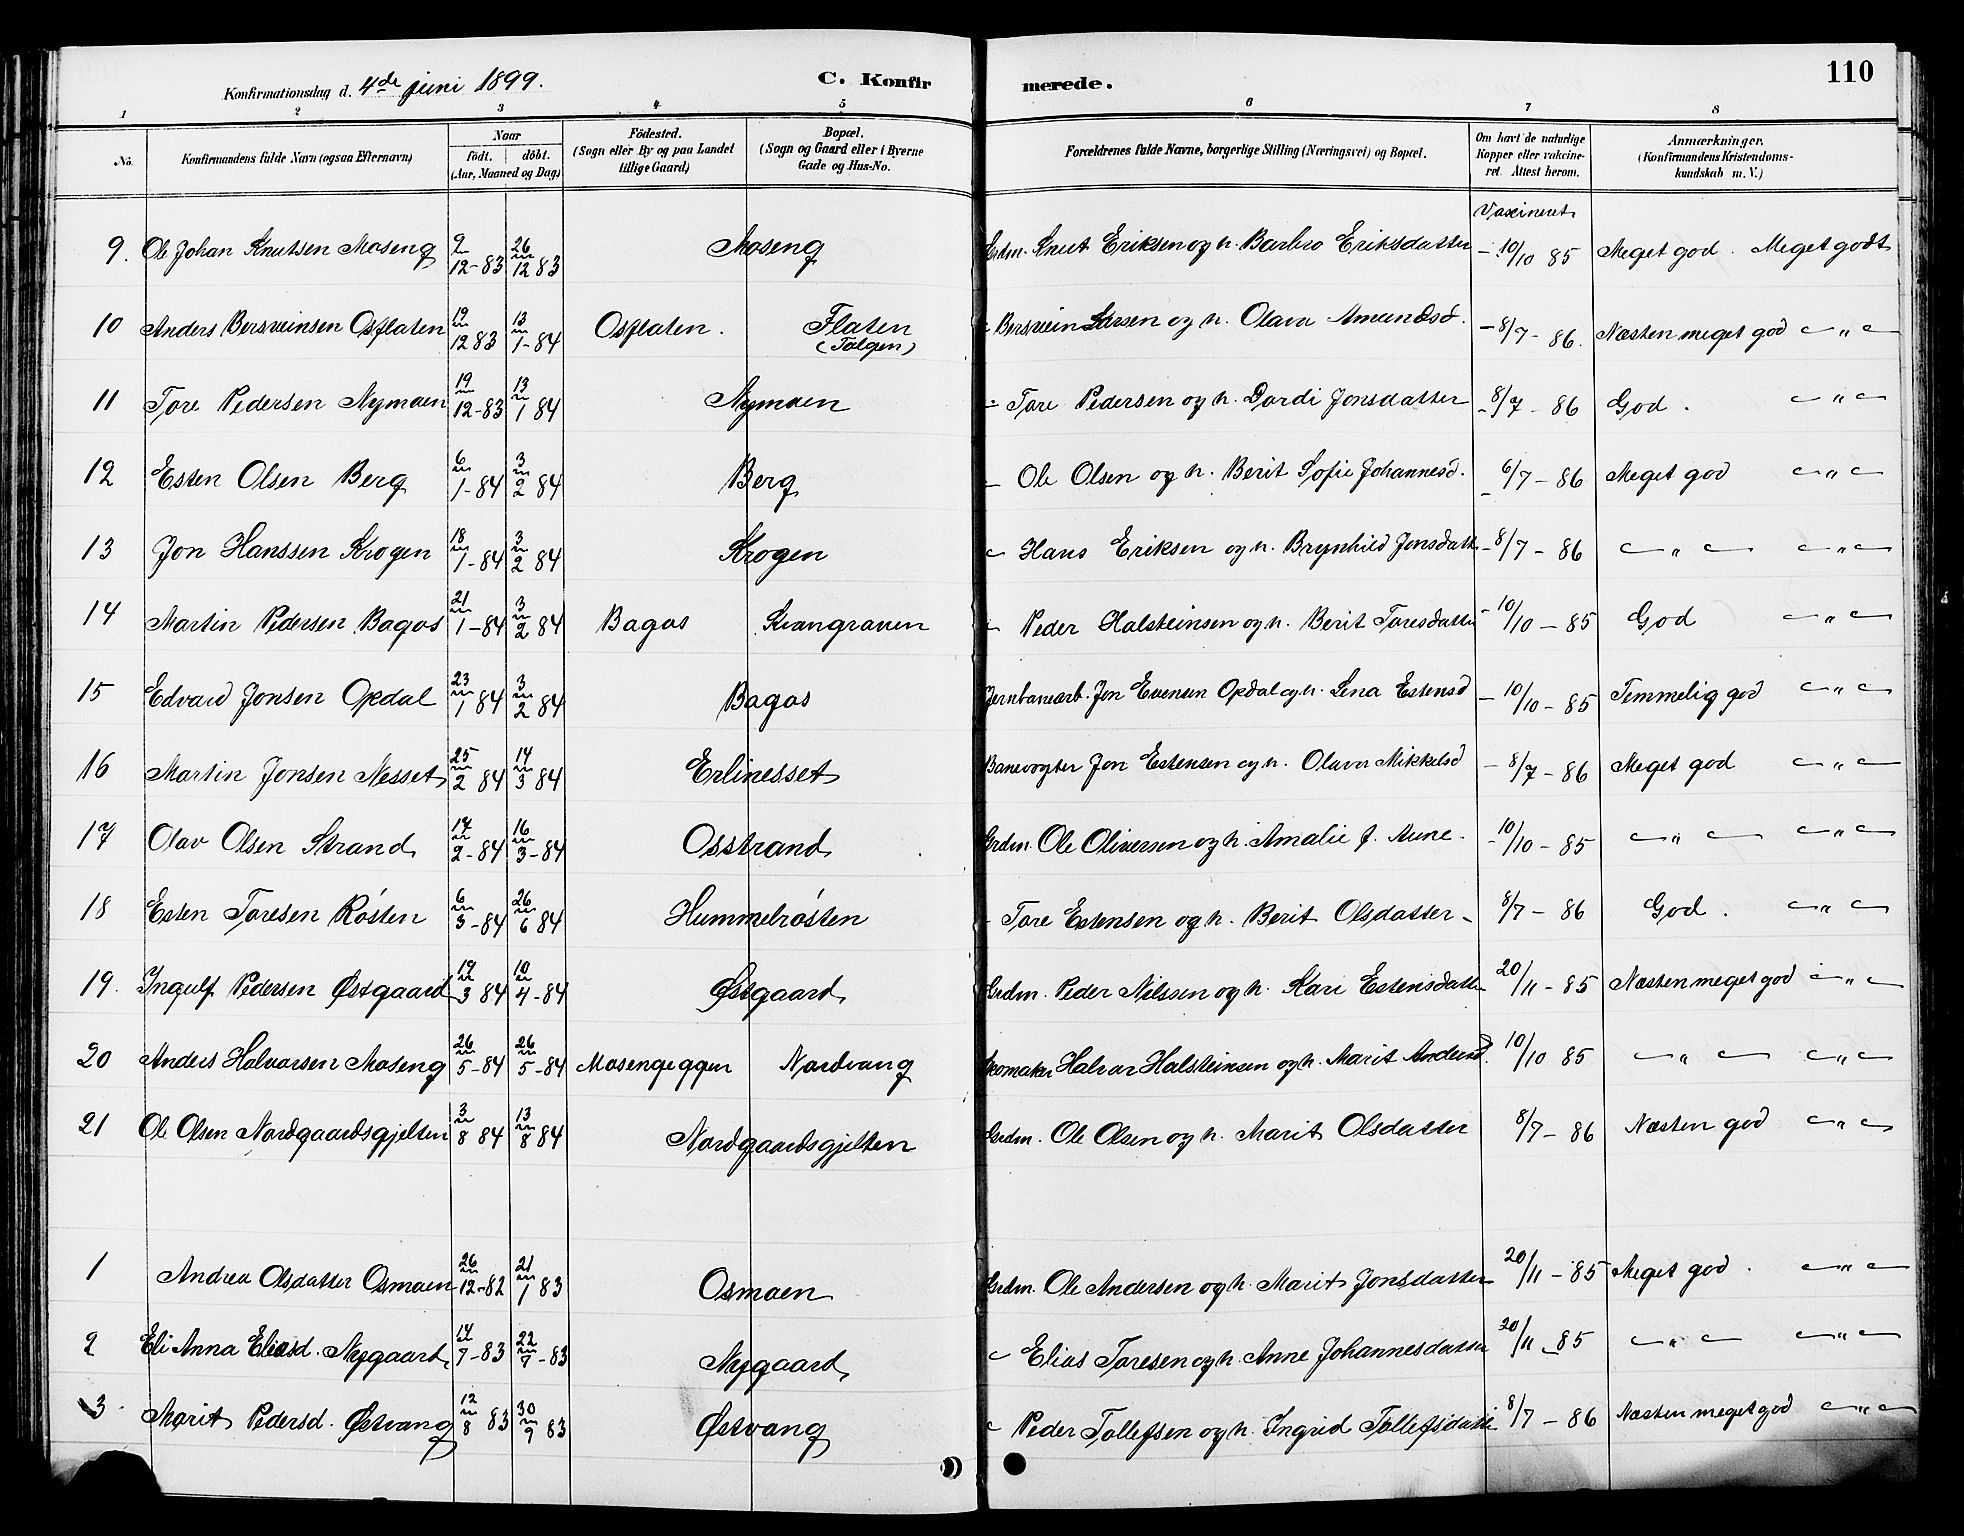 Konfirmationsdag d. 4de juni 1899. C. Konfirmerede. 110
1 2 3 4 5 6 7 8
No. Konfirmandens fulde Navn (ogsaa Efternavn) Naar födt. döbt. (Aar, Maaned og Dag) Födested. (Sogn eller By og paa Landet tillige Gaard) Bopæl. (Sogn og Gaard eller i Byerne Gade og Hus-No. Forældrenes fulde Navne, borgerlige Stilling (Næringsvei) og Bopæl. Om havt de naturlige Kopper eller vakcineret. Attest herom. Anmærkninger. (Konfirmandens Kristendomskundskab m. V.)
Vaxineret
9. Ole Johan Knutsen Moseng 9/12-83 26/12 83 Moseng Grdm. Knut Eriksen og h. Barbro Eriksdatter - 10/10 85 Meget god. Meget godt
10 Anders Bersveinsen Osflaten 19/12 83 13/1-84 Osflaten. Flaten (Tolgen) - Bersvein Larsen og h. Olava Amundsd. - 8/7 - 86. Næsten meget god - " -
11 Tore Pedersen Nymoen 19/12-83 13/1 84 Nymoen - Tore Pedersen og h. Dordi Jonsdatter - 8/7 - 86 God. - " -
12 Esten Olsen Berg 6/1-84 3/2 84 Berg - Ole Olsen og h. Berit Sofie Johannesd. - 6/7 - 86 Meget god - " -
13 Jon Hanssen Krogen 18/1-84 3/2 84 Krogen - Hans Eriksen og h. Brynhild Jonsdatt - 8/7 - 86 - " - - " -
14 Martin Pedersen Bagos 21/1-84 3/2 84 Bagos Kvangraven - Peder Halsteinsen og h. Berit Toresdatter - 10/10 - 85 God - " -
15 Edvard Jonsen Opdal 23/1 84 3/2 84 Bagos Jernbanearb. Jon Evensen Opdal og h. Lena Estensd - 10/10 - 85 Temmelig god - " -
16 Martin Jonsen Nesset 25/2 84 14/3 84 Erlinesset Banevogter Jon Estensen og h. Olava Mikkelsd - 8/7 - 86 Meget god - " -
17 Olav Olsen Strand 14/2-84 16/3-84 Osstrand Grdm. Ole Oliversen og h. Amalie f. Aune. - 10/10 - 85 - " - - " -
18 Esten Toresen Røsten 6/3-84 26/6 84 Hummelrøsten - Tore Estensen og h. Berit Olsdatter - 8/7 - 86 God. - " -
19. Ingulf Pedersen Østgaard 19/3 84 10/4-84 Østgaard Grdm. Peder Nilssen og h. Kari Estensdatter 20/11 - 85 Næsten meget god - " -
20 Anders Halvorsen Moseng 26/5-84 26/5-84 Mosengeggen Nordvang Skomaker Halvor Halsteinsen og h. Marit Andersd. 10/10 85 - " - - " -
21 Ole Olsen Nordgaardsgjelten 3/8 84 13/8 84 Nordgaardsgjelten Grdm. Ole Olsen og h. Marit Olsdatter 8/7 - 86 Næsten god - " -
1 Andrea Olsdatter Osmoen 26/12-82 21/1 83 Osmoen Grdm. Ole Andersen og h. Marit Jonsdatter 20/11 - 85 Meget god. - " -
2 Eli Anna Eliasd. Nygaard 14/7-83 22/7-83 Nygaard - Elias Toresen og h. Anne Johannesdatter 20/11 - 85 - " - - " -
3 Marit Pedersd. Østvang 12/8 83 30/9 83 Østvang - Peder Tollefsen og h. Ingrid Tollefsdatter 8/7 - 86 Næsten meget god - " -